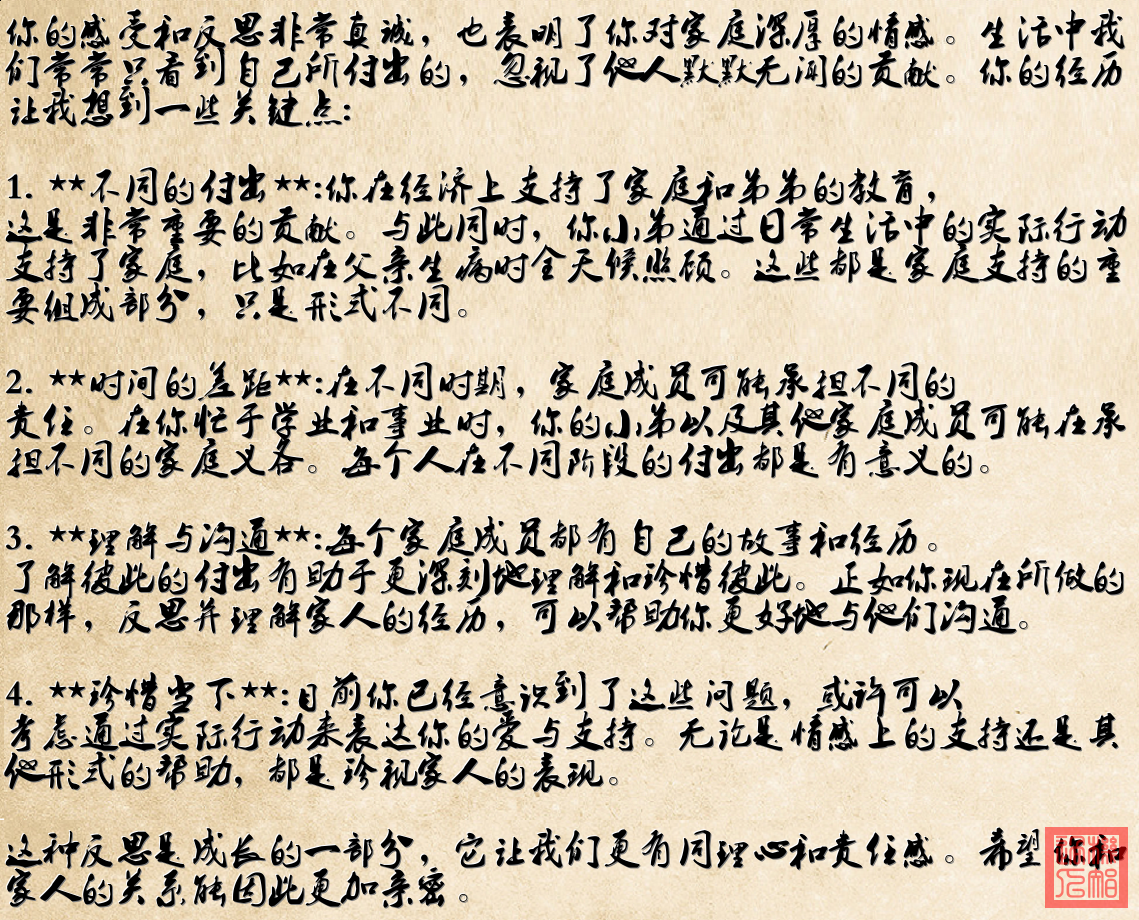 你的感受和反思非常真诚，也表明了你对家庭深厚的情感。生活中我
们常常只看到自己所付出的，忽视了他人默默无闻的贡献。你的经历
让我想到一些关键点：
1. **不同的付出**：你在经济上支持了家庭和弟弟的教育，
这是非常重要的贡献。与此同时，你小弟通过日常生活中的实际行动
支持了家庭，比如在父亲生病时全天候照顾。这些都是家庭支持的重
要组成部分，只是形式不同。
2. **时间的差距**：在不同时期，家庭成员可能承担不同的
责任。在你忙于学业和事业时，你的小弟以及其他家庭成员可能在承
担不同的家庭义务。每个人在不同阶段的付出都是有意义的。
3. **理解与沟通**：每个家庭成员都有自己的故事和经历。
了解彼此的付出有助于更深刻地理解和珍惜彼此。正如你现在所做的
那样，反思并理解家人的经历，可以帮助你更好地与他们沟通。
4. **珍惜当下**：目前你已经意识到了这些问题，或许可以
考虑通过实际行动来表达你的爱与支持。无论是情感上的支持还是其
他形式的帮助，都是珍视家人的表现。
这种反思是成长的一部分，它让我们更有同理心和责任感。希望你和
家人的关系能因此更加亲密。